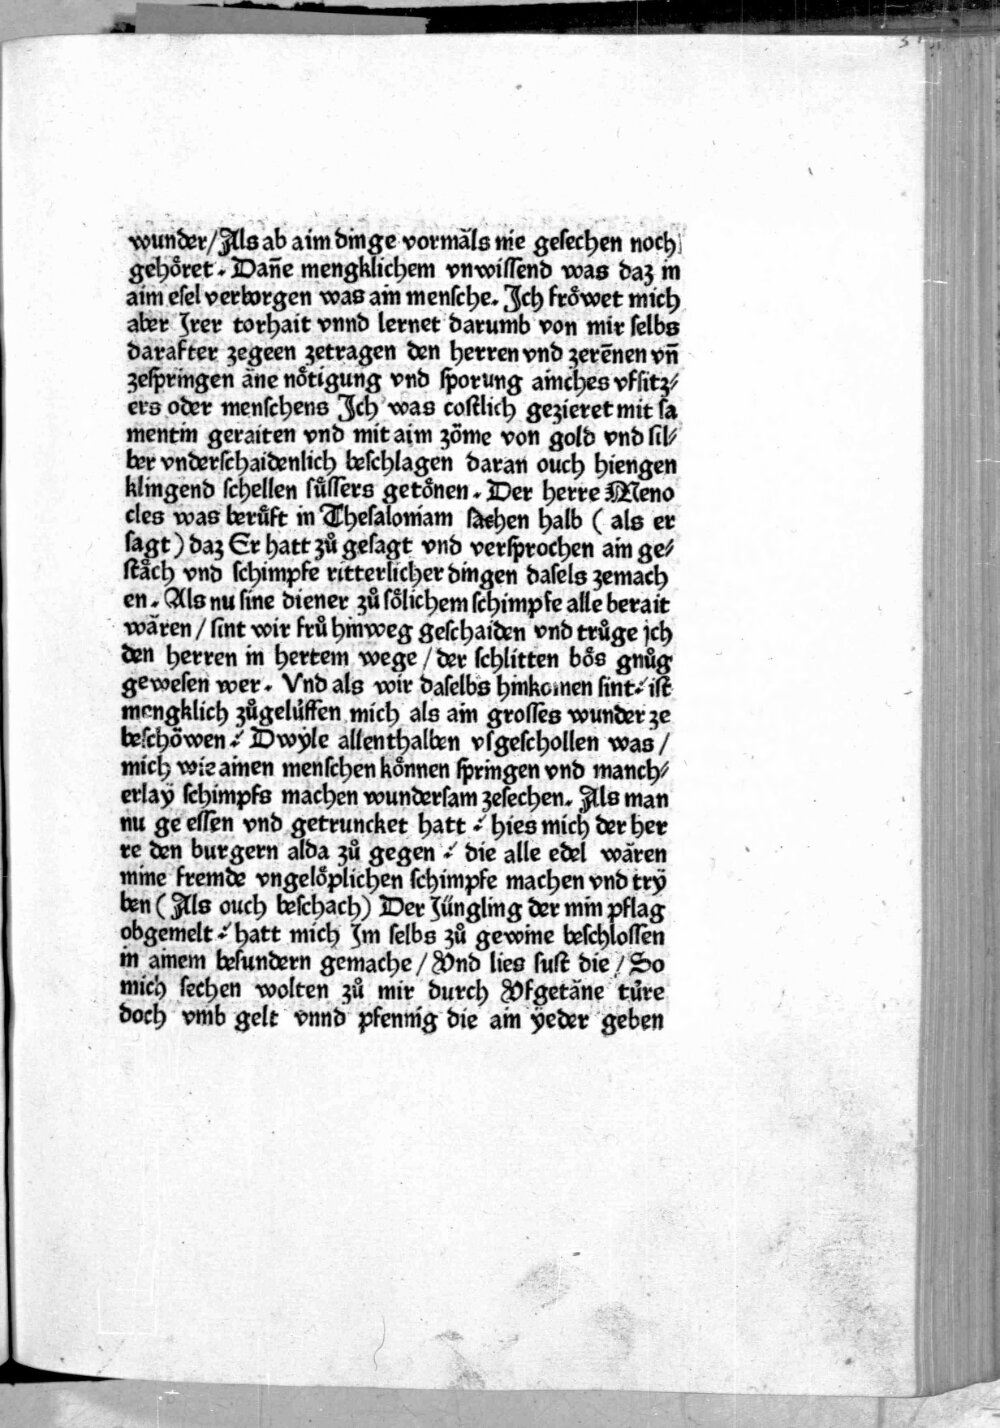 wunder/Als ab aim dinge vormāls nie gesechen noch
gehöret. Dañe mengklichem vnwissend was daz in
aim esel verborgen was ain mensche. Jch fröwet mich
aber Jrer torhait vnnd lernet darumb von mir selbs
darafter zegeen zetragen den herren vnd zerēnen vñ
zespringen āne nötigung vnd sporung ainches vfsitz⸗
ers oder menschens Jch was costlich gezieret mit sa
mentin geraiten vnd mit aim zöme von gold vnd sil⸗
ber vnderschaidenlich beschlagen daran ouch hiengen
klingend schellen süssers getönen. Der herre Meno
cles was berüft in Thesaloniam sachen halb (als er
sagt) daz Er hatt zů gesagt vnd versprochen ain ge⸗
stäch vnd schimpfe ritterlicher dingen daselbs zemach
en. Als nu sine diener zů sölichem schimpfe alle berait
wāren / sint wir frů hinweg geschaiden vnd trůge ich
den herren in hertem wege / der schlitten bös gnůg
gewesen wer. Vnd als wir daselbs hinkomen sint ⁏ ist
mengklich zůgelüffen mich als ain grosses wunder ze
beschöwen ⁏ Dwyle allenthalben vsgeschollen was /
mich wie ainen menschen können springen vnd manch⸗
erlaÿ schimpfs machen wundersam zesechen. Als man
nu ge essen vnd getruncket hatt ⁏ hies mich der her
re den burgern alda zů gegen ⁏ die alle edel wāren
mine fremde vngelöplichen schimpfe machen vnd trÿ
ben (Als ouch beschach) Der Jüngling der min pflag
obgemelt ⁏ hatt mich Jm selbs zů gewine beschlossen
in ainem besundern gemache / Vnd lies sust die / So
mich sechen wolten zů mir durch Vfgetāne türe
doch vmb gelt vnnd pfennig die ain ÿeder geben